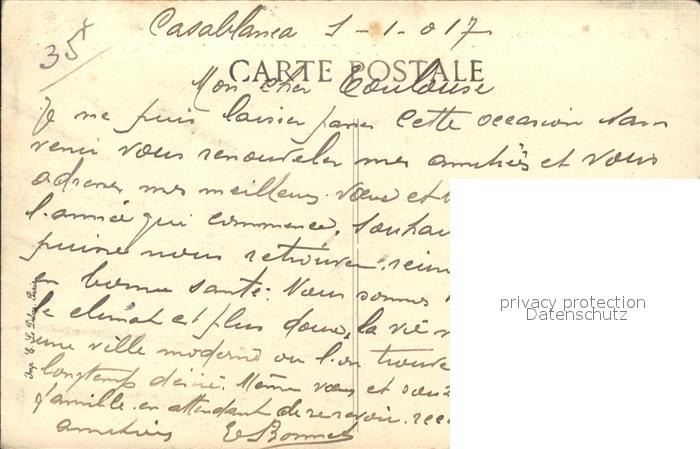 35x
Casablanca 1-1-017
CARTE POSTALE
Mon cher Toulouse
Je ne puis laisser passer cette occasion sans
venir vous renouveler mes amitiés et vous
adresser mes meilleurs vœux et
l'année qui commence. Souhai
puisse nous retrouver réuni
en bonne santé. Nous sommes
le climat et plus doux, la vie
une ville moderne ou l'on trouve
longtemp désiré. Même vœux et
famille en attendant de revoir. rece
amitiés E Bonnet
Imp. E. Le Deley, Paris
privacy protection
Datenschutz